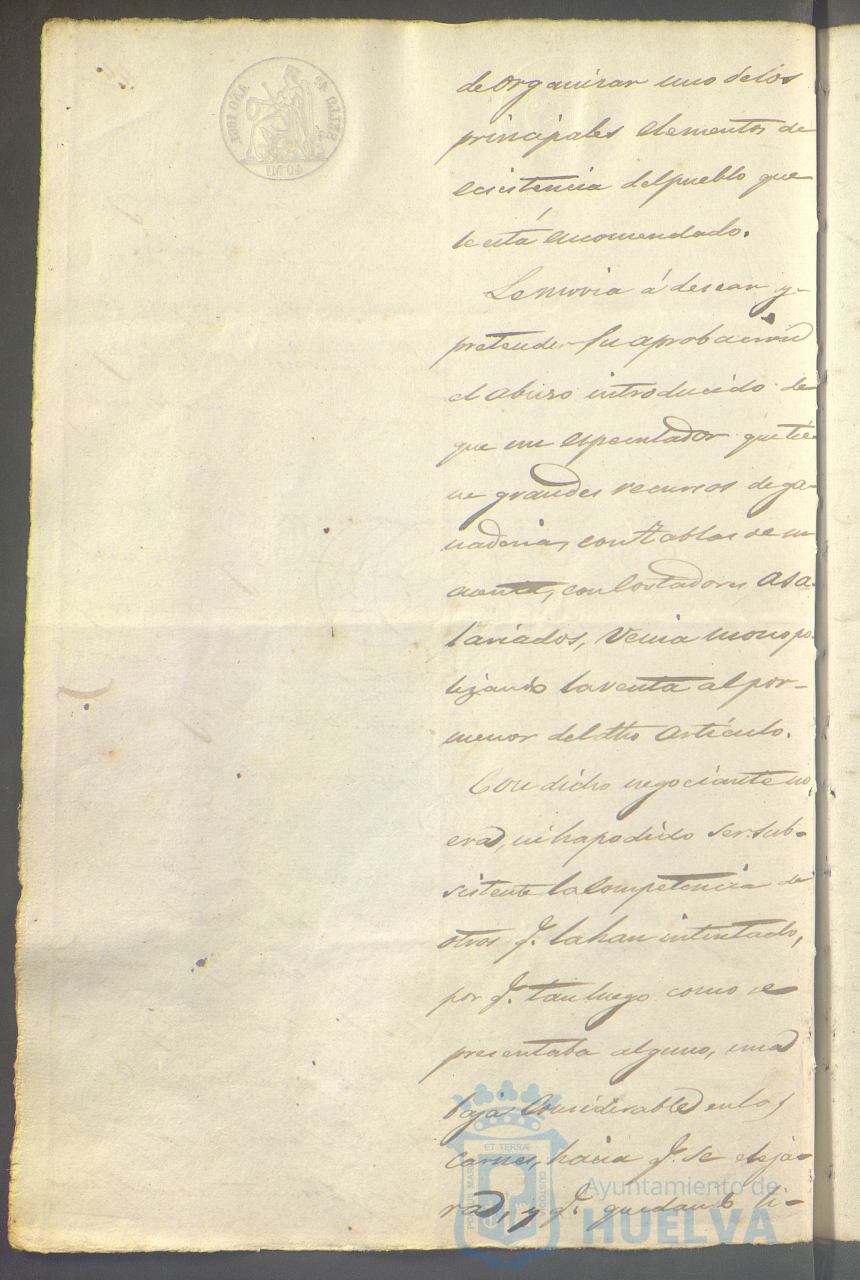 de organizar uno de los
principales elementos de
ecsistencia del pueblo que
le está encomendado.
Le movia á desear y
pretender su aprobacion
el abuso introducido de
que un especulador que tie-
ne grandes recursos de ga-
naderia, con tablas de su
cuenta, con Cortadores asa-
lariados, venia monopo-
lizando la venta al por-
menor del dho artículo.
Con dicho negociante no
era, ni ha podido ser sub-
sistente la competencia de
otros q.e la han intentado,
por q.e tan luego como se
presentaba alguno, una
baja considerable en las
carnes, hacia q.e se aleja-
ra, y q.e quedando li-
Ayuntamiento de
HUELVA